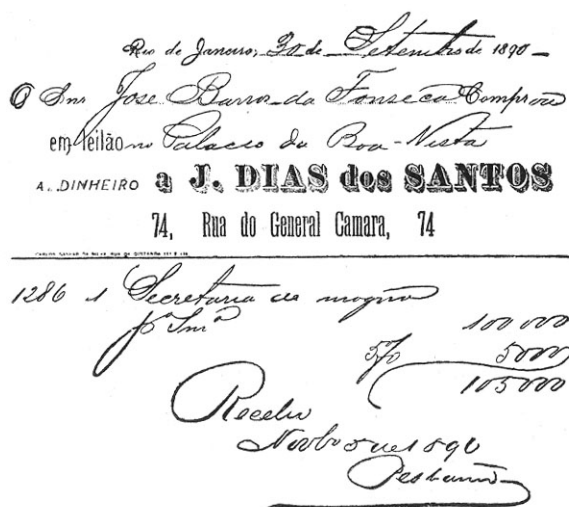 Rio de Janeiro, 30 de Setembro de 1890
O Snr Jose Barros da Fonseca Comprou
em leilão no Palacio da Boa-Vista
A DINHEIRO a J. DIAS dos SANTOS
74, Rua do General Camara, 74
1286 1 Secretaria de mogno
pª Snrª 100 000
5% 5000
105 000
Recebi
Novbo 5 de 1890